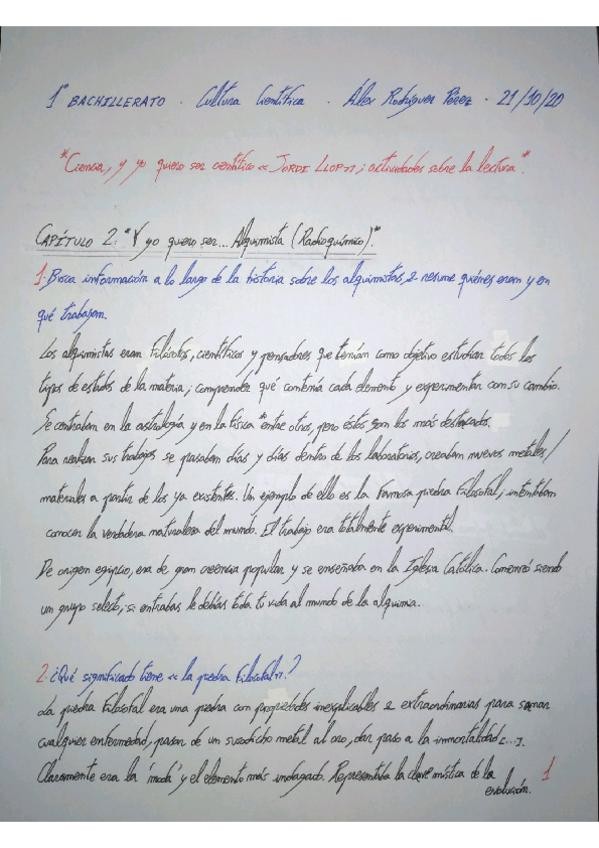 1º BACHILLERATO · Cultura Científica · Álex Rodríguez Pérez · 21/10/20
"Ciencia, y yo quiero ser científico « JORDI LLOP»; actividades sobre la lectura".
CAPÍTULO 2: "Y yo quiero ser... Alquimista (Radioquímico)".
1. Busca información a lo largo de la historia sobre los alquimistas, y resume quiénes eran y en
qué trabajan.
Los alquimistas eran filósofos, científicos y pensadores que tenían como objetivo estudiar todos los
tipos de estados de la materia; comprender qué contenía cada elemento y experimentar con su cambio.
Se centraban en la astrología y en la física "entre otros, pero éstos son los más destacados.
Para realizar sus trabajos se pasaban días y días dentro de los laboratorios, creaban nuevos metales/
materiales a partir de los ya existentes. Un ejemplo de ello es la famosa piedra filosofal; intentaban
conocer la verdadera naturaleza del mundo. El trabajo era totalmente experimental.
De origen egipcio, era de gran creencia popular y se enseñaba en la Iglesia Católica. Comenzó siendo
un grupo selecto, si entrabas le debías toda tu vida al mundo de la alquimia.
2. ¿Qué significado tiene « la piedra filosofal»?
La piedra filosofal era una piedra con propiedades inexplicables e extraordinarias para sanar
cualquier enfermedad, pasar de un susodicho metal al oro, dar paso a la inmortalidad [...].
Claramente era la 'moda' y el elemento más indagado. Representaba la clave mística de la
evolución.
1